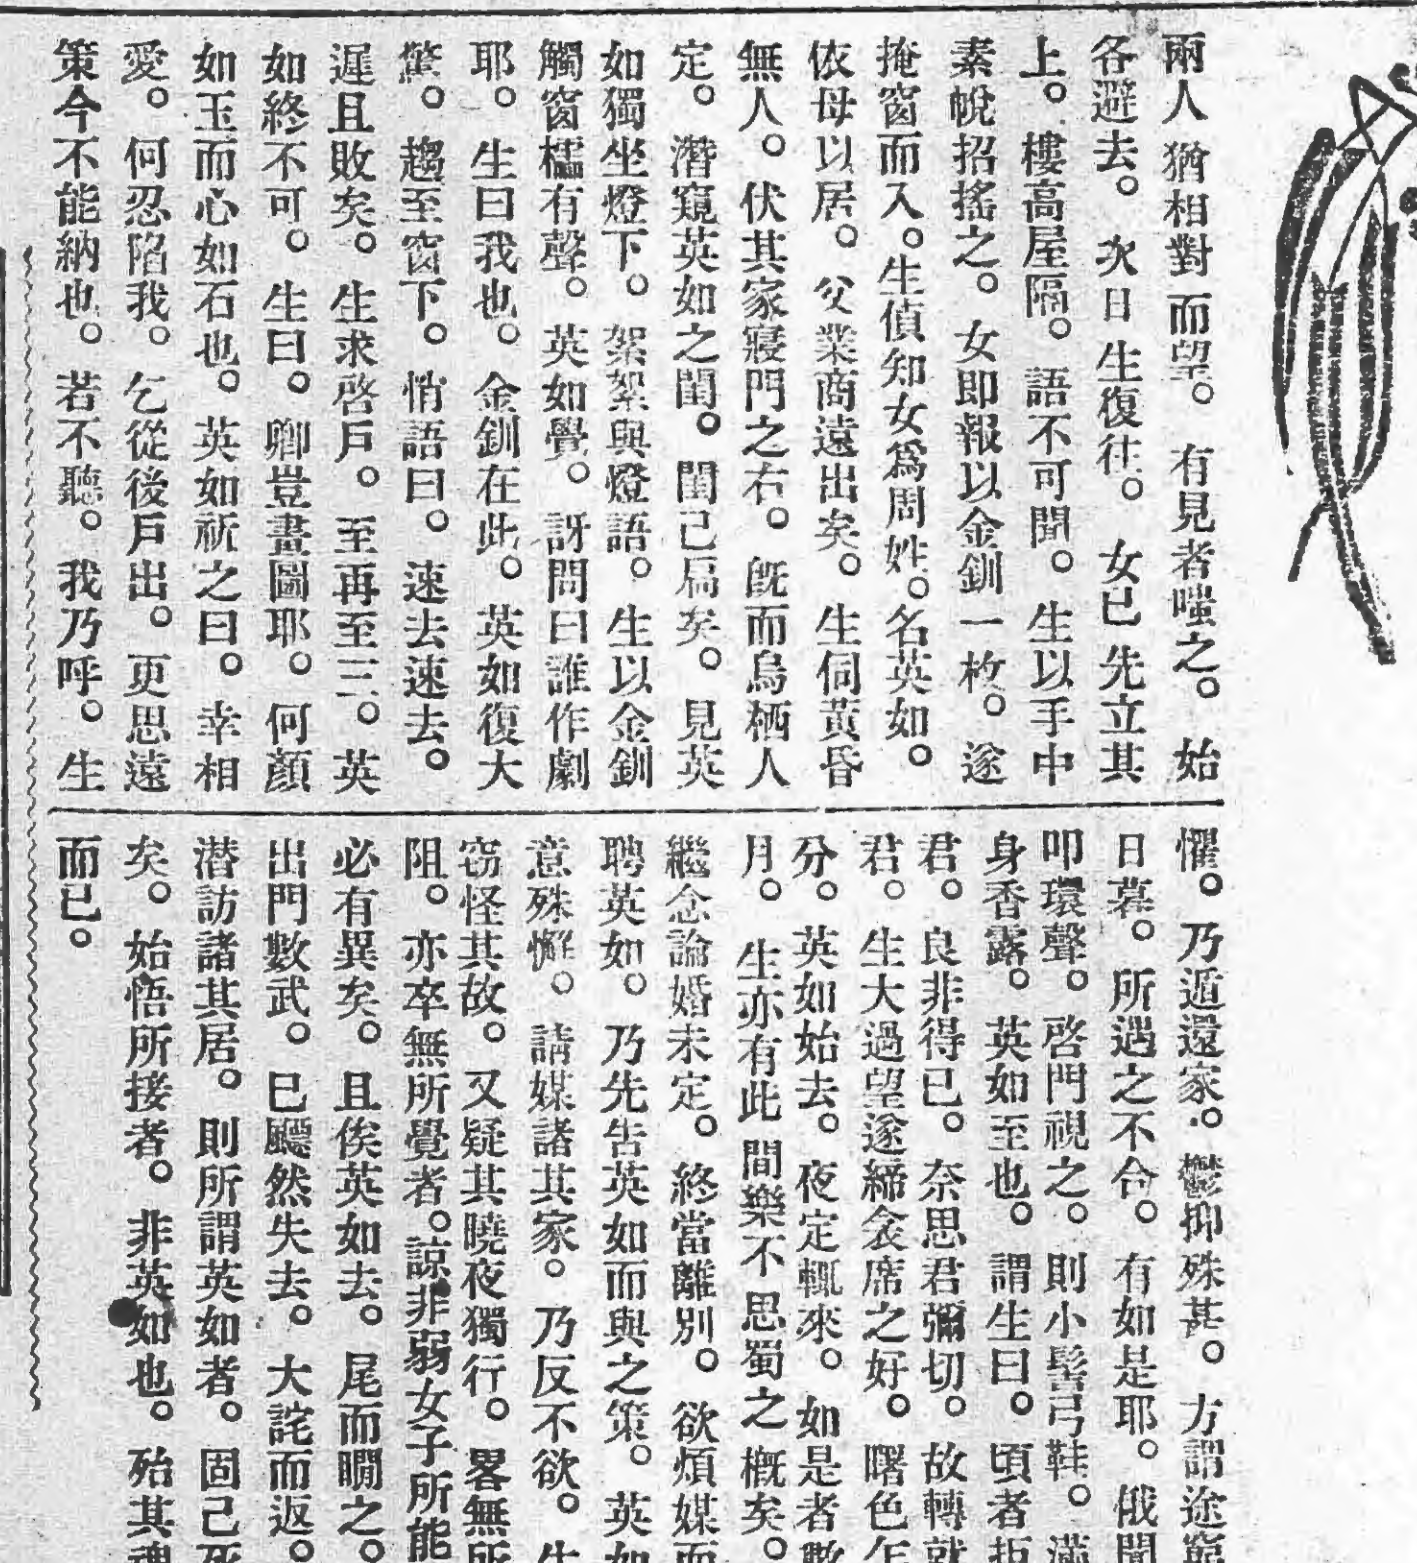 兩人猶相對而望。有見者嗤之。始
各避去。次日生復往。女已先立其
上。樓高屋隔。語不可聞。生以手中
素帨招搖之。女即報以金釧一枚。遂
掩窗而入。生偵知女爲周姓。名英如。
依母以居。父業商遠出矣。生伺黃昏
無人。伏其家寢門之右。旣而烏栖人
定。潛窺英如之閨。閨己扃矣。見英
如獨坐燈下。絮絮與燈語。生以金釧
觸窗櫺有聲。英如覺。訝問曰誰作劇
耶。生曰我也。金釧在此。英如復大
驚。趨至窗下。悄語曰。速去速去。
遲且敗矣。生求啓戶。至再至三。英
如終不可。生曰。卿豈畫圖耶。何顏
如玉而心如石也。英如祈之曰。幸相
愛。何忍陷我。乞從後戶出。更思遠
策今不能納也。若不聽。我乃呼。生
懼。乃遁還家。鬱抑殊甚。方謂途窮
日暮。所遇之不合。有如是耶。俄聞
叩環聲。啓門視之。則小髻弓鞋。滿
身香露。英如至也。謂生曰。頃者拒
君。良非得已。奈思君彌切。故轉就
君。生大過望遂締衾席之好。曙色乍
分。英如始去。夜定輒來。如是者數
月。生亦有此間樂不思蜀之概矣。
繼念論婚未定。終當離別。欲煩媒而
聘英如。乃先告英如而與之策。英如
意殊懈。請媒諸其家。乃反不欲。生
窃怪其故。又疑其曉夜獨行。畧無所
阻。亦卒無所覺者。諒非弱女子所能
必有異矣。且俟英如去。尾而瞯之。
出門數武。巳飄然失去。大詫而返。
潛訪諸其居。則所謂英如者。固己死
矣。始悟所接者。非英如也。殆其魂
而已。